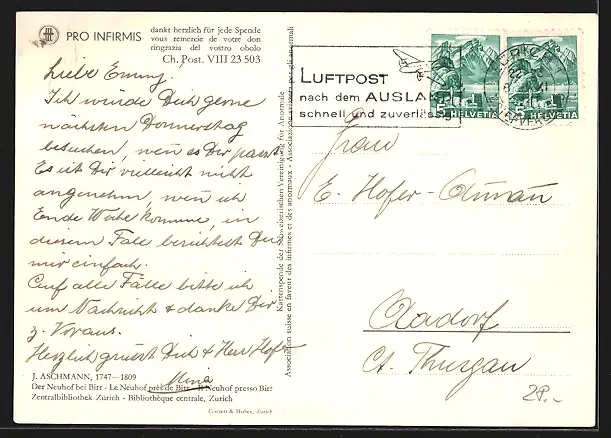 PRO INFIRMIS
dankt herzlich für jede Spende
vous remercie de votre don
ringrazia del vostro obolo
Ch. Post. VIII 23 503
Liebe Emmy.
Ich würde Dich gerne
nächsten Donnerstag
besuchen, wen es Dir passt
Es ist Dir vielleicht nicht
angenehm, wen ich
Ende Woche komme, in
diesem Falle berichtest Du
mir einfach.
Auf alle Fälle bitte ich
um Nachricht & danke Dir
z. Voraus.
Herzlich grüsst Dich & Herr Hofer
Mina
J. ASCHMANN, 1747—1809
Der Neuhof bei Birr - Le Neuhof près de Birr - Il Neuhof presso Birr
Zentralbibliothek Zürich - Bibliothèque centrale, Zurich
Conzett & Huber, Zürich
Kartenspende der Schweizerischen Vereinigung für Anormale
Association suisse en faveur des infirmes et des anormaux - Associazione svizzera per gli anormali
LUFTPOST
nach dem AUSLAND
schnell und zuverlässig
HELVETIA
HELVETIA
Frau
E. Hofer-
Aadorf
Ct. Thurgau
28.-